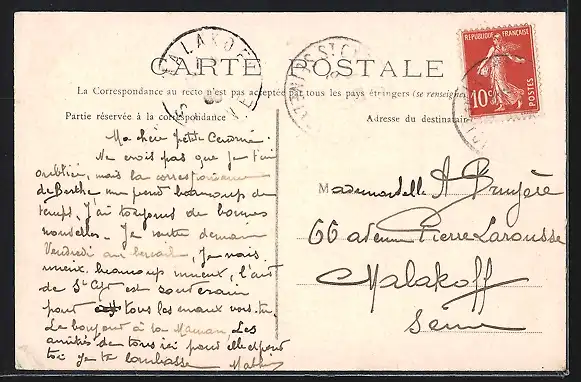 CARTE POSTALE
La Correspondance au recto n'est pas acceptée par tous les pays étrangers (se renseigner
Partie réservée à la correspondance
Adresse du destinataire
RÉPUBLIQUE FRANÇAISE
10c
POSTES
MALAKOFF
SEINE
Ma chère petite
Ne crois pas que je t'ai
oubliée, mais la correspondance
de Berthe me prend beaucoup de
temps. J'ai toujours de bonnes
nouvelles. Je rentre demain
Vendredi au bercail, je vais
mieux, beaucoup mieux, l'air
de St Cyr est souverain
pour tous les maux vois-tu.
Le bonjour à ta Maman, Les
amitiés de tous ici pour elle et pour
toi je te
Mademoiselle A Bruyère
66 avenue Pierre Larousse
Malakoff
Seine